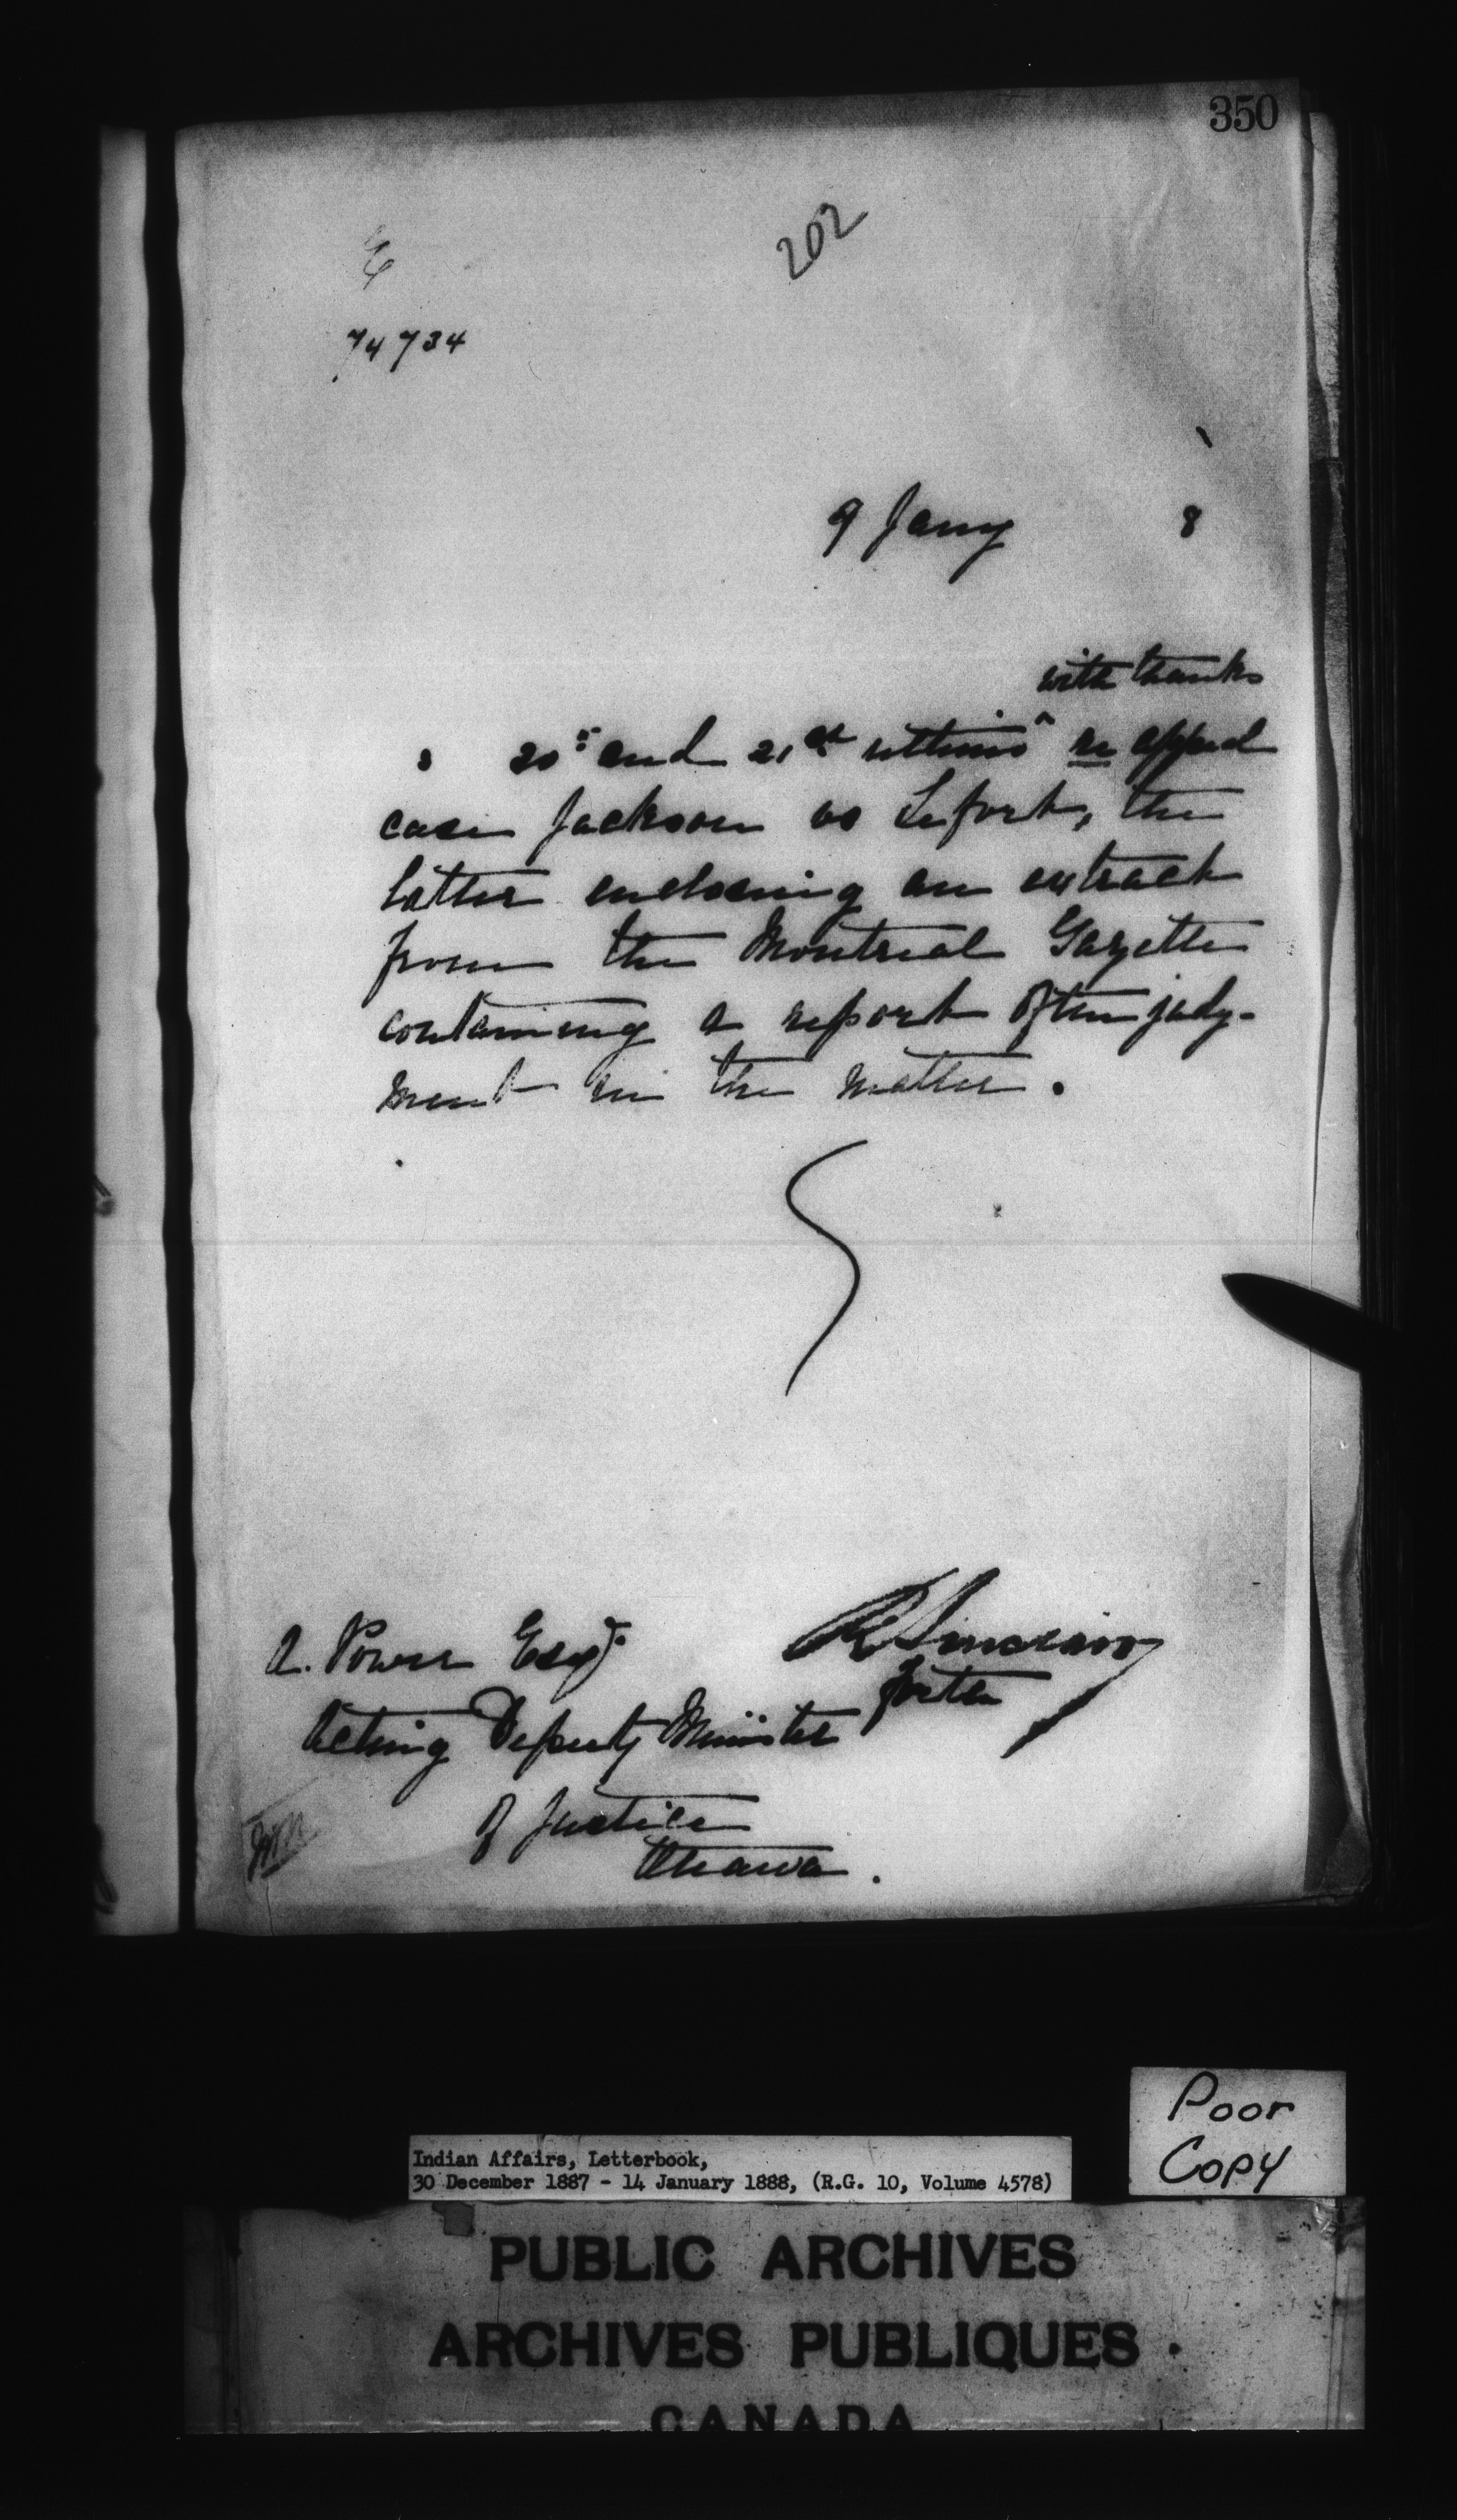 350
202
74734
9 Jany 8
with thanks
s 20th and 21st ultimo ^ re appeal
case Jackson vs Lefort, the
latter enclosing an extract
from the Montreal Gazette
containing a report of the judg-
ment in the matter.
A. Power Esqr.
R Sinclair
for the
Acting Deputy Minister
of Justice
Ottawa.
Poor
Copy
Indian Affairs, Letterbook,
30 December 1887 - 14 January 1888, (R.G. 10, Volume 4578)
PUBLIC ARCHIVES
ARCHIVES PUBLIQUES
CANADA